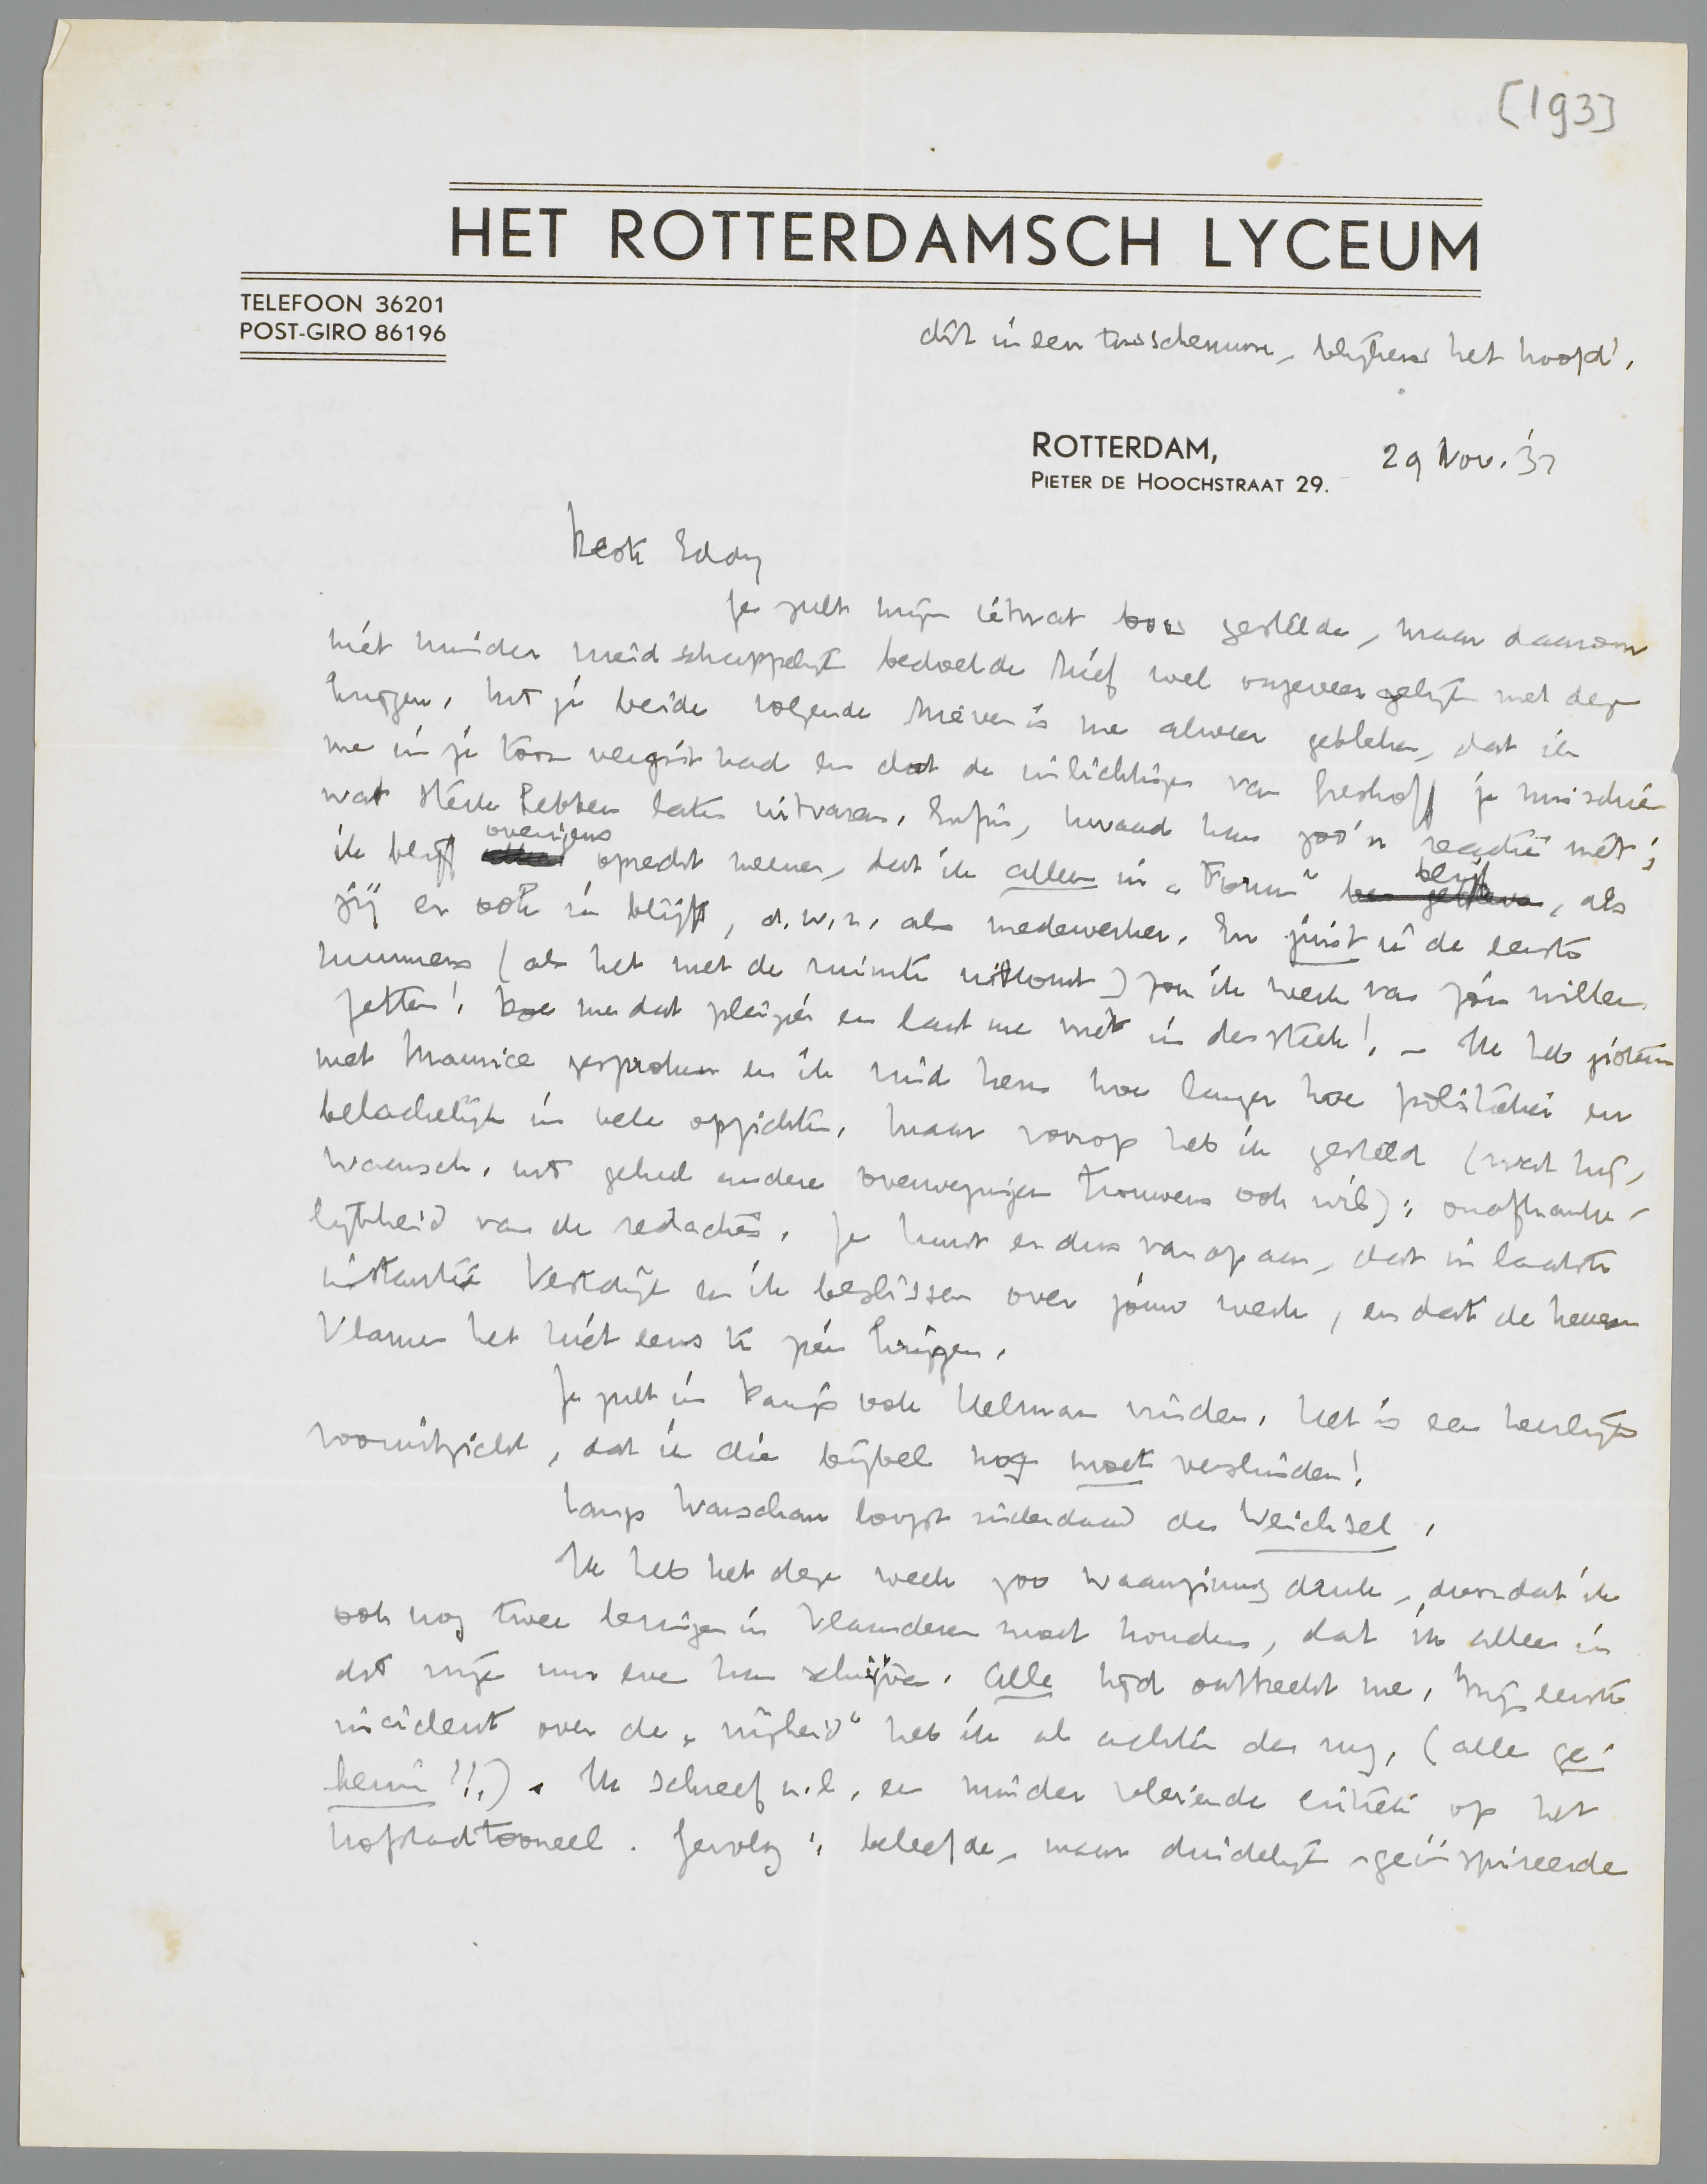 [193]
HET ROTTERDAMSCH LYCEUM
TELEFOON 36201
POST-GIRO 86196
dit in een tusschenuur, blijkens het hoofd!
ROTTERDAM,
PIETER DE HOOCHSTRAAT 29.
29 Nov. '33
Beste Eddy
Je zult mijn ietwat boos gestelde, maar daarom
niet minder vriendschappelijk bedoelde brief wel ongeveer gelijk met deze
krijgen. Uit je beide volgende brieven is me alweer gebleken, dat ik
me in je toon vergist had en dat de inlichtingen van Greshoff je misschien
wat sterk hebben laten uitvaren. Enfin, kwaad kan zoo'n reactie niet;
ik blijf overigens oprecht meenen, dat ik alleen in „Forum" blijf, als
jij er ook in blijft, d.w.z. als medewerker. En juist in de eerste
nummers (als het met de ruimte uitkomt) zou ik werk van jóu willen
zetten! Doe me dat pleizier en laat me niet in den steek! – Ik heb gisteren
met Maurice gesproken en ik vind hem hoe langer hoe politieker en
belachelijk in vele opzichten. Maar voorop heb ik gesteld (wat hij,
Waensch, uit geheel andere overwegingen trouwens ook wil): onafhanke-
lijkheid van de redacties. Je kunt er dus van op aan, dat in laatste
instantie Vestdijk en ik beslissen over jouw werk, en dat de heeren
Vlamen het niet eens te zien krijgen.
Je zult in Parijs ook Helman vinden. Het is een heerlijk
vooruitzicht, dat ik die bijbel nog moet verslinden!
Langs Warschau loopt inderdaad de Weichsel.
Ik heb het deze week zoo waanzinnig druk, doordat ik
ook nog twee lezingen in Vlaanderen moet houden, dat ik alleen in
dit vrije uur even kan schrijven. Alle tijd ontbreekt me. Mijn eerste
incident over de „vrijheid" heb ik al achter den rug. (alles ge-
heim!!). Ik schreef n.l. een minder vleiende critiek op het
hofstadtooneel. Gevolg: beleefde, maar duidelijk geïnspireerde